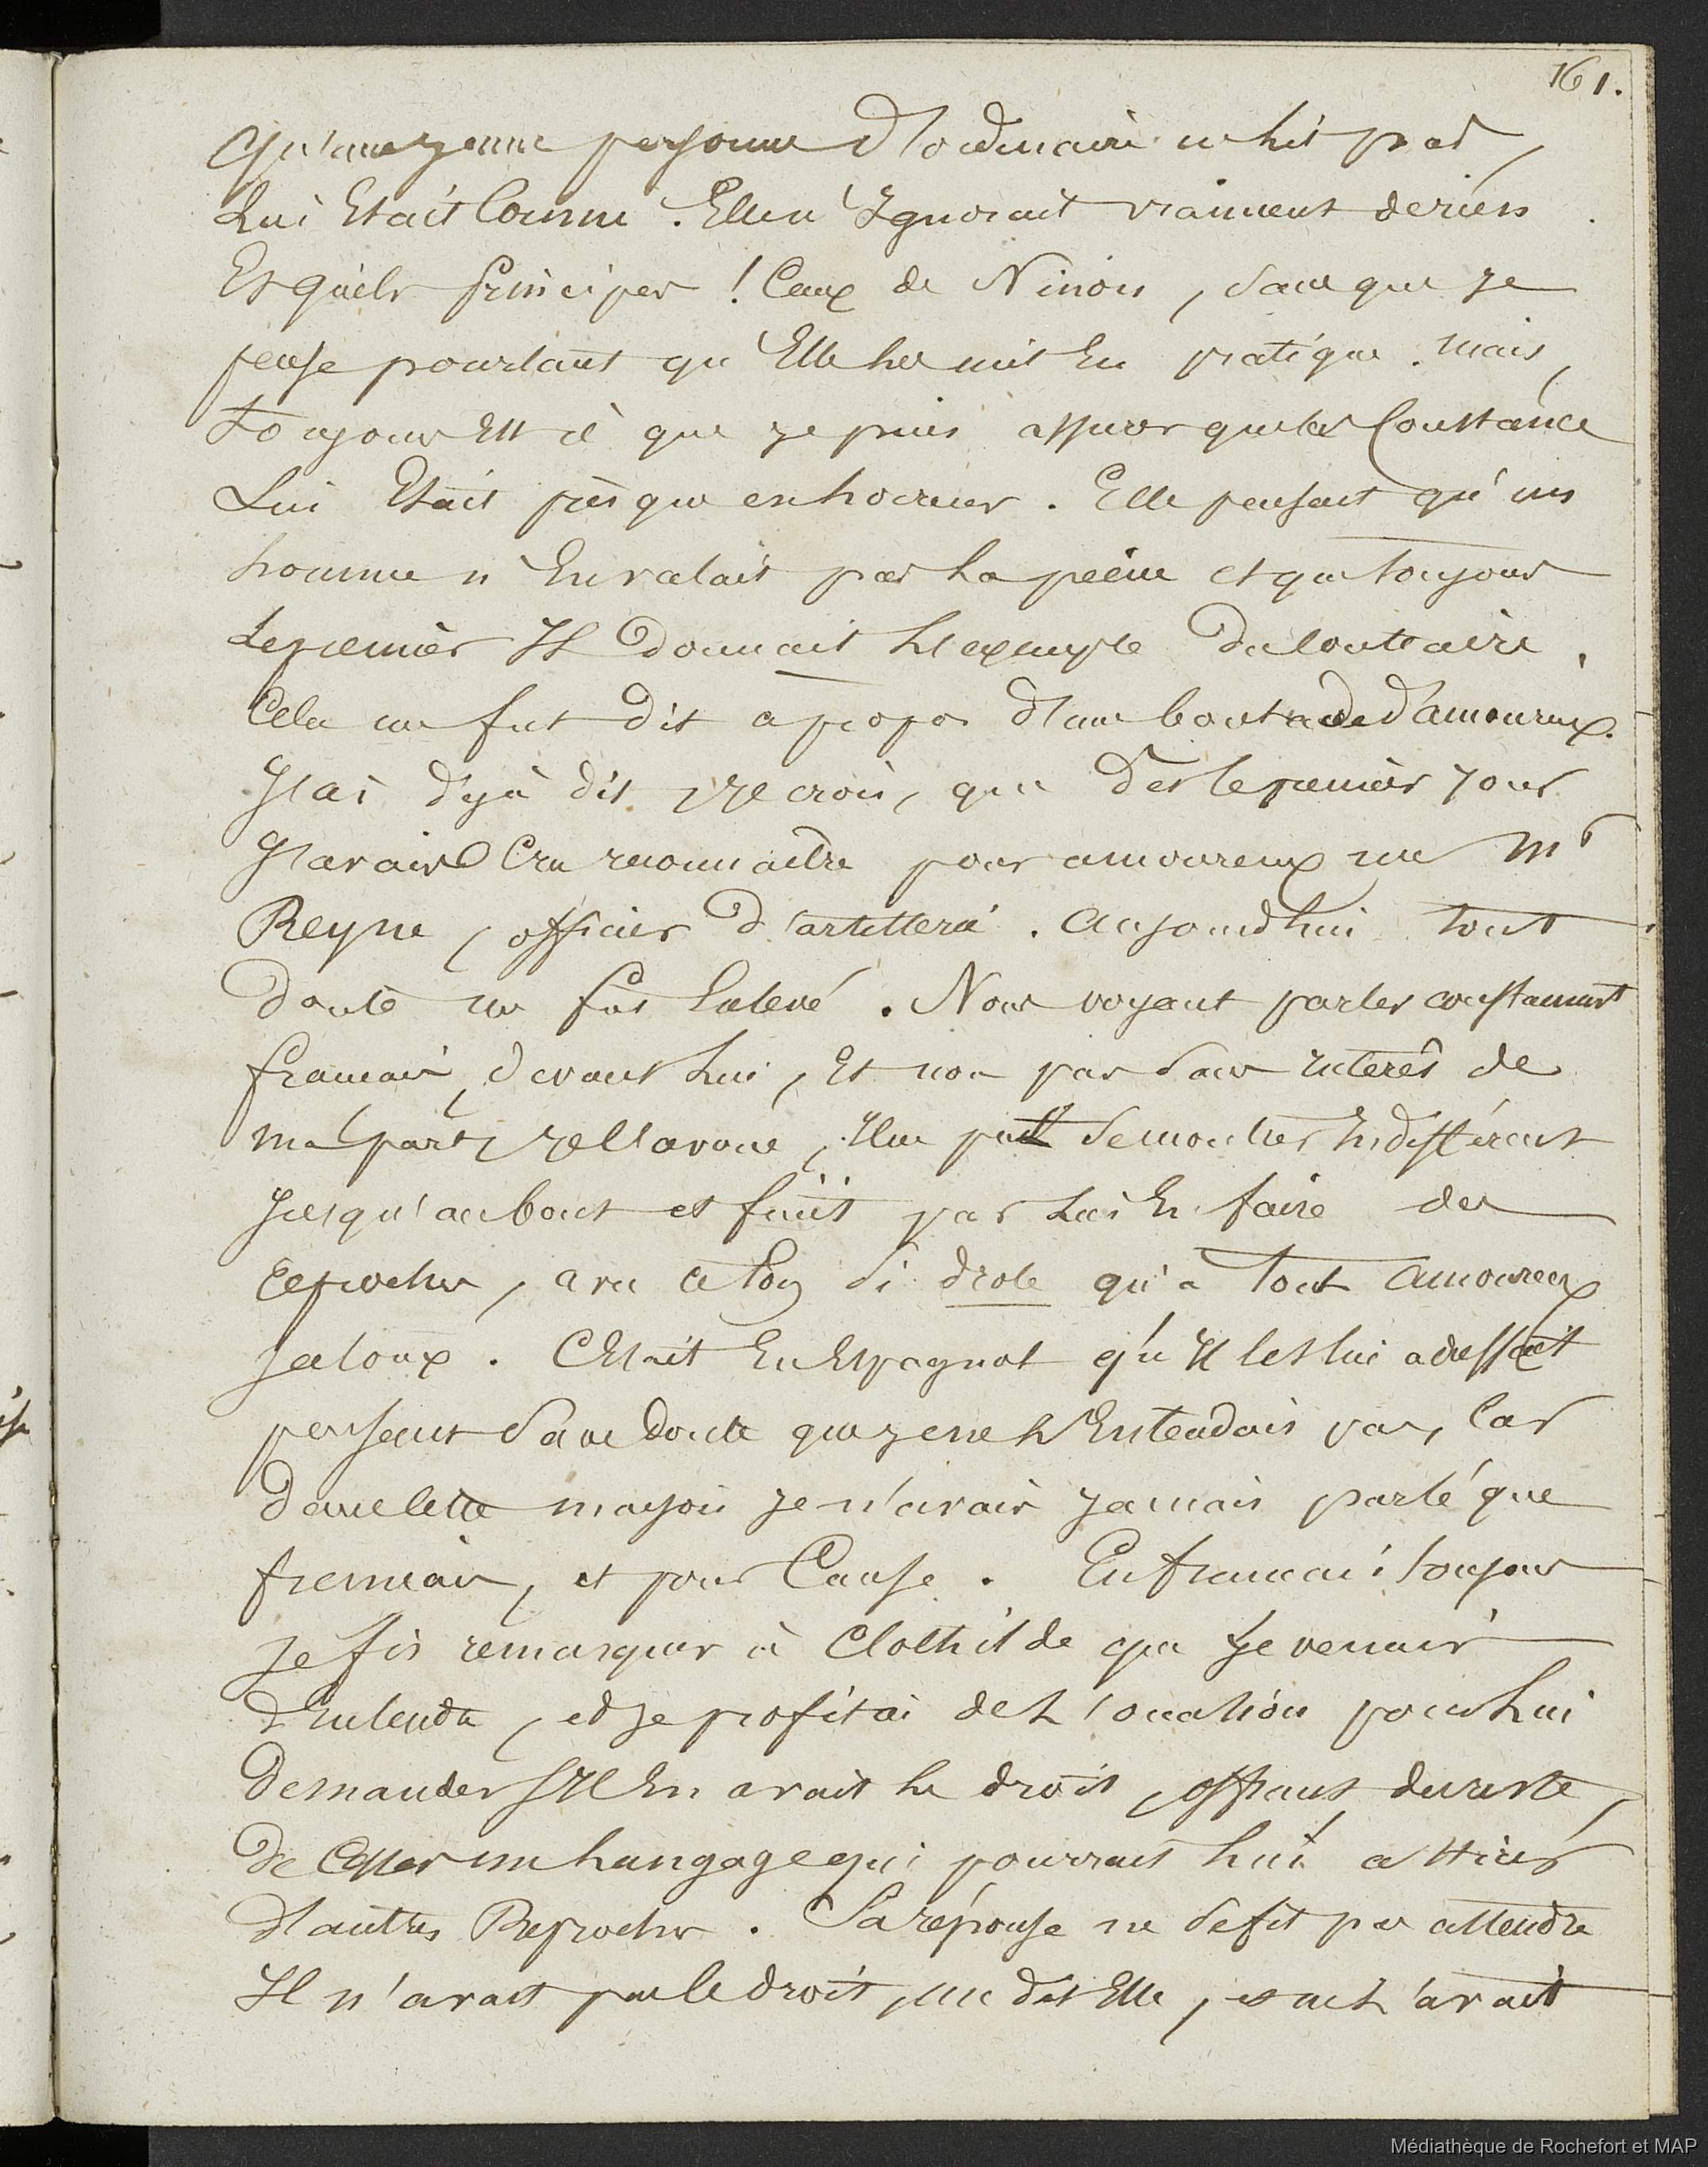 161.
Qu'une jeune personne d'ordinaire ne lit pas,
Lui Etait Connu. Elle n'Ignorait vraiment de rien
Et quels principes ! Ceux de Ninon, sans que je
pense pourtant qu'Elle les mit En pratique. Mais,
toujours Est il que je puis assurer que la Constance
Lui Etait presque en horreur. Elle pensait qu'un
homme n'En valait pas la peine et que toujours
Le premier Il donnait l'exemple du contraire.
Cela me fut dit a propos d'une boutade d'amoureux.
J'ai déjà dit, je crois, que dès le premier jour
J'avais Cru reconnaitre pour amoureux un Mr
Reyne, officier d'artillerie. Aujourdhui tout
doute me fut Enlevé. Nous voyant parler constamment
français, devant lui, Et non pas sans interêt de
ma part, je l'avoue, Il ne put se montrer Indifférent
Jusqu'au bout et finit par lui En faire des
reproches, avec ce ton si drole qu'a tout amoureux
jaloux. C'Etait En Espagnol qu'Il les lui adressait
pensant sans doute que je ne l'Entendais pas, Car
dans cette maison je n'avais jamais parlé que
français, et pour Cause. En français toujours
je fis remarquer à Clothilde que je venais
d'Entendre, et je profitai de l'occation pour lui
demander s'Il En avait le droit, offrant du reste,
de Cesser un langage qui pourrait lui attirer
d'autres Reproches. Sa réponse ne se fit pas attendre
Il n'avait pas le droit, me dit Elle, et ne l'avait